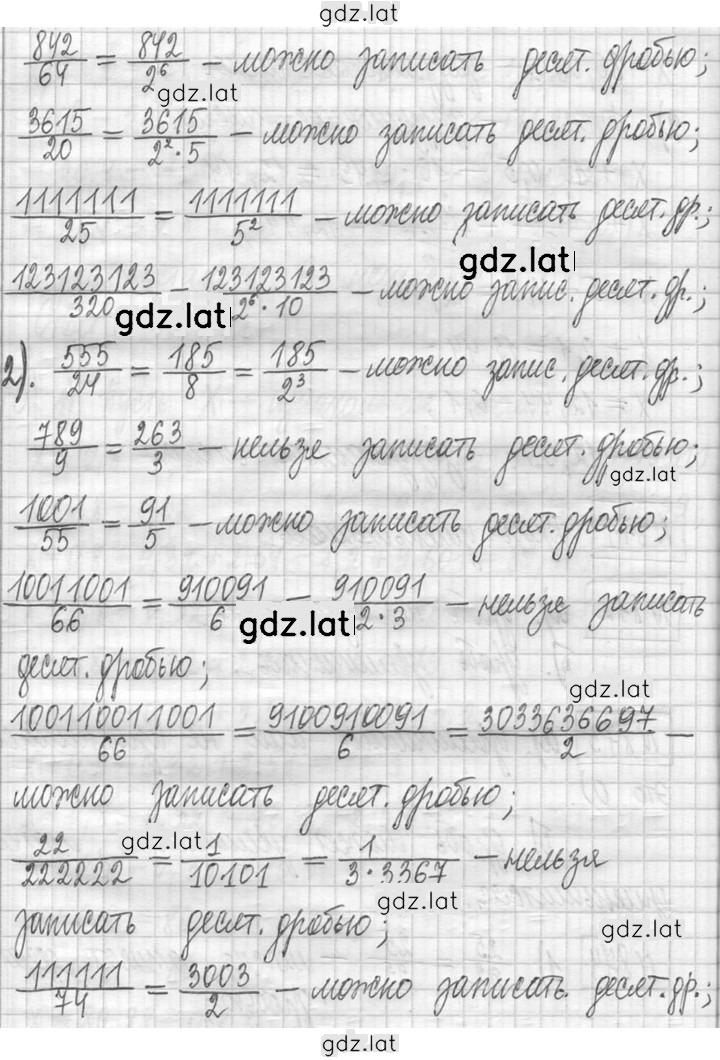 gdz.lat
842/64 = 842/2⁶ – можно записать десят. дробью;
gdz.lat
3615/20 = 3615/2²·5 – можно записать десят. дробью;
1111111/25 = 1111111/5² – можно записать десят. др.;
gdz.lat
123123123/320 – 123123123/2⁶·10 – можно запис. десят. др.;
gdz.lat
2). 555/24 = 185/8 = 185/2³ – можно запис. десят. др.;
789/9 = 263/3 – нельзя записать десят. дробью;
gdz.lat
1001/55 = 91/5 – можно записать десят. дробью;
10011001/66 = 910091/6 – 910091/2·3 – нельзя записать
gdz.lat
десят. дробью;
gdz.lat
100110011001/66 = 9100910091/6 = 3033636697/2 –
можно записать десят. дробью;
gdz.lat
22/222222 = 1/10101 = 1/3·3367 – нельзя
gdz.lat
записать десят. дробью;
gdz.lat
111111/74 = 3003/2 – можно записать десят. др.;
gdz.lat